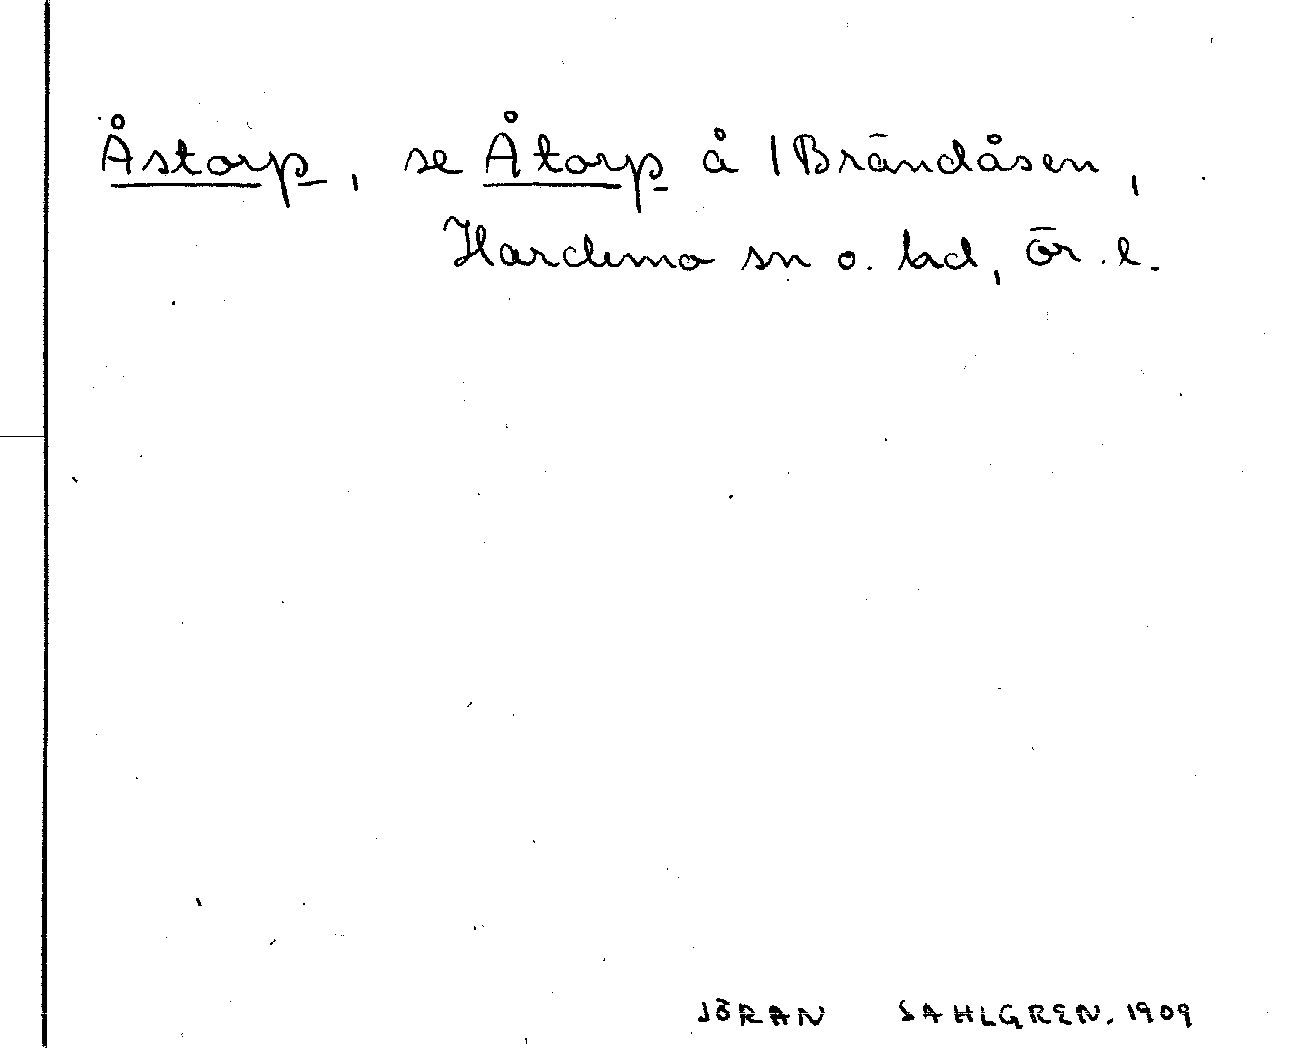 Åstorp, se Åtorp å 1 Brändåsen,
Hardemo sn o. hd, ör. l.
JÖRAN SAHLGREN. 1909